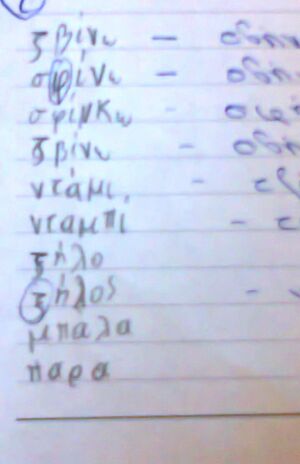 ζβίνω — σβήν
σφίνω — σβήν
σφίνκω -
ζβίνω - σβήν
ντάμι, -
νταμπι -
ζήλο
ζήλος -
μπαλα
παρα